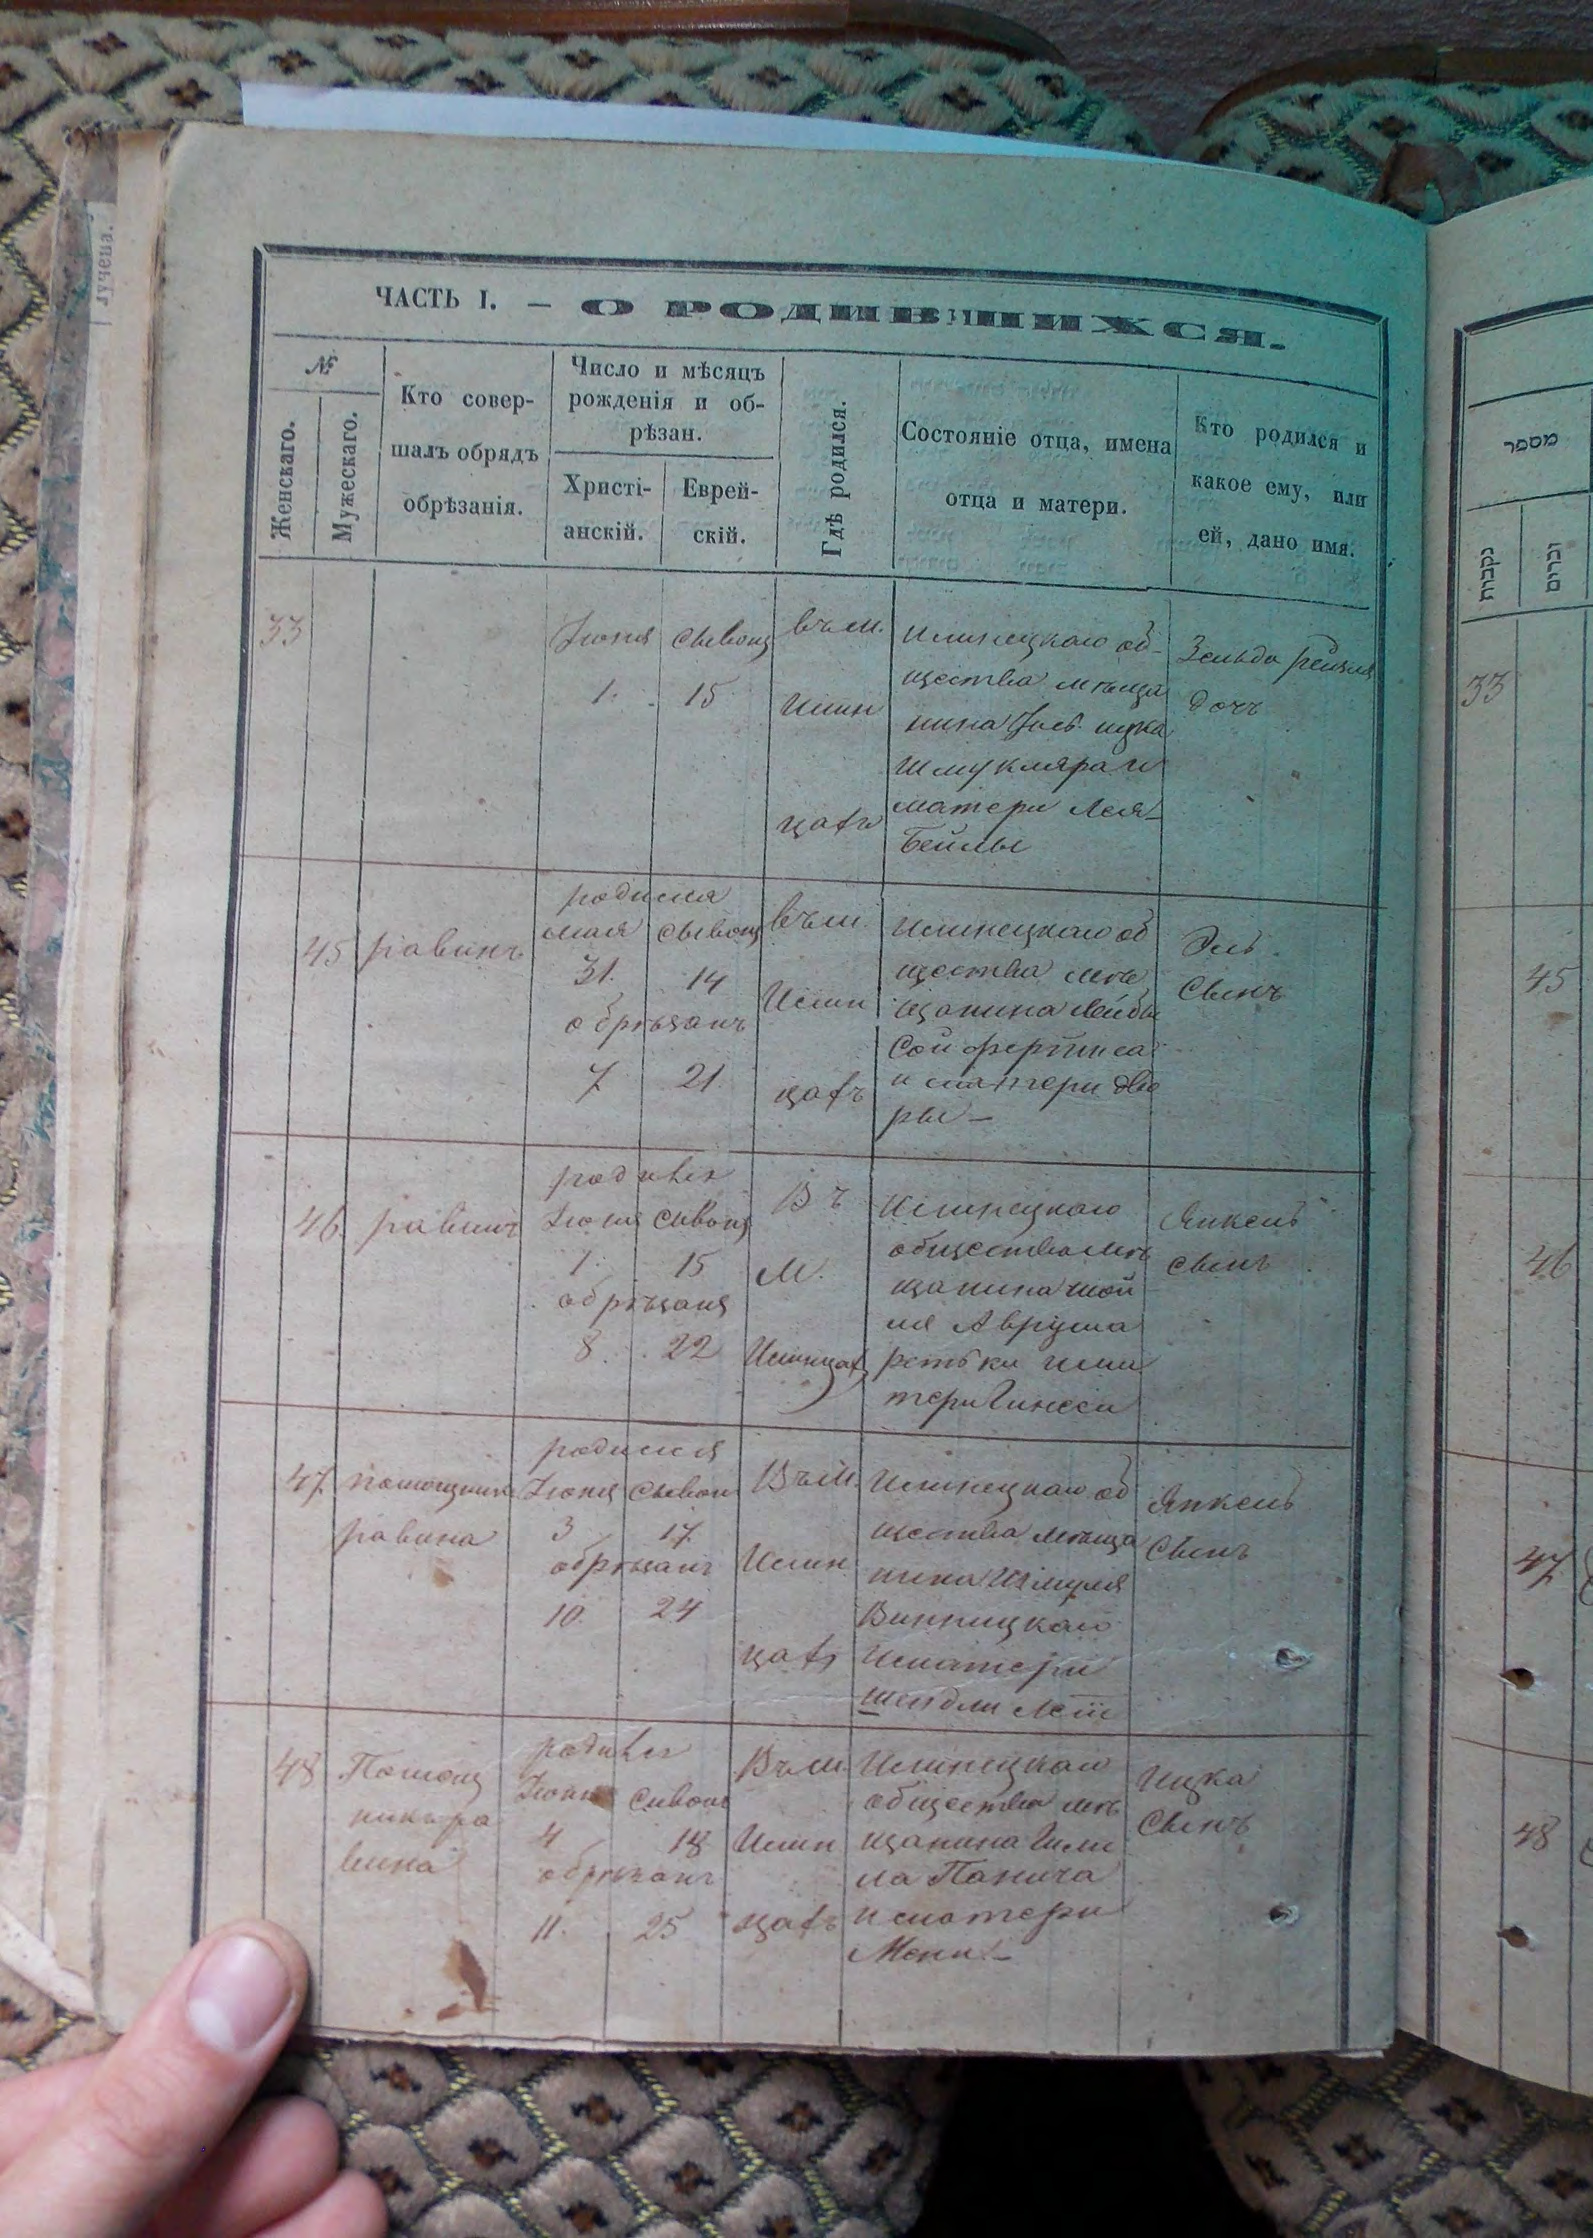 лучена.
ЧАСТЬ I. — О РОДИВШИХСЯ.
№
Женскаго.
Мужескаго.
Кто совер-
шалъ обрядъ
обрѣзанія.
Число и мѣсяцъ
рожденія и об-
рѣзан.
Христі-
анскій.
Еврей-
скій.
Гдѣ родился.
Состояніе отца, имена
отца и матери.
Кто родился и
какое ему, или
ей, дано имя.
33
Іюня
1.
15
въ м.
Илин
цахъ
Илинецкаго об-
щества мѣща
нина
Шмукляра и
матери Лея-
Бейлы
Зельда Рейзля
дочь
45
равинъ
родился
мая
31.
14
обрѣзанъ
7
21
въ м.
Илин
цахъ
Илинецкаго об
щества мѣ
щанина Лейбы
и матери Дво
ры —
Эль
Сынъ
46
равинъ
родился
Іюня
1.
15
обрѣзанъ
8.
22
Въ
М.
Илинцахъ
Илинецкаго
общества мѣ
щанина Мой
ше Аврума
и ма
тери
Янкель
сынъ
47
помощникъ
равина
родился
Іюня
3
17
обрѣзанъ
10.
24
Въ М.
Илин
цахъ
Илинецкаго об
щества мѣща
нина Шмуля
Винницкаго
и матери
Шейдли Леи
Янкель
Сынъ
48
Помощ
никъ ра
вина
родился
Іюня
4
18
обрѣзанъ
11.
25
Въ м
Илин
цахъ
Илинецкаго
общества мѣ
щанина
Панича
и матери
Мени. —
Ицка
Сынъ
מספר
נקבות
זכרים
33
45
46
47
48